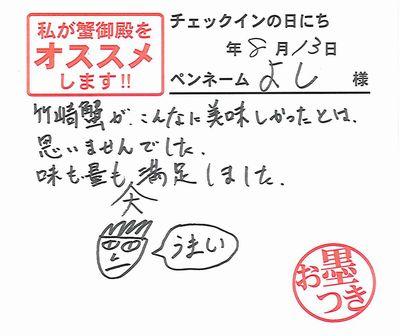 私が蟹御殿を
オススメ
します!!
チェックインの日にち
年8月13日
ペンネーム よし 様
竹崎蟹が、こんなに美味しかったとは、
思いませんでした。
味も量も大満足しました。
うまい
お墨つき